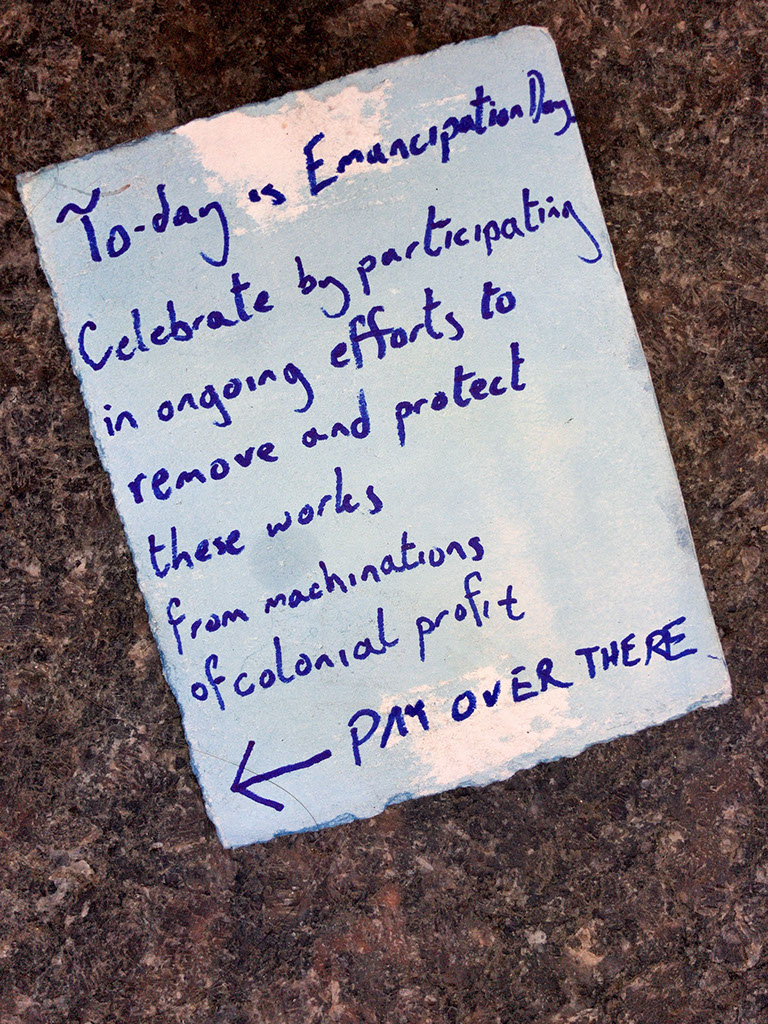 To-day is Emancipation Day.
Celebrate by participating
in ongoing efforts to
remove and protect
these works
from machinations
of colonial profit
← PAY OVER THERE